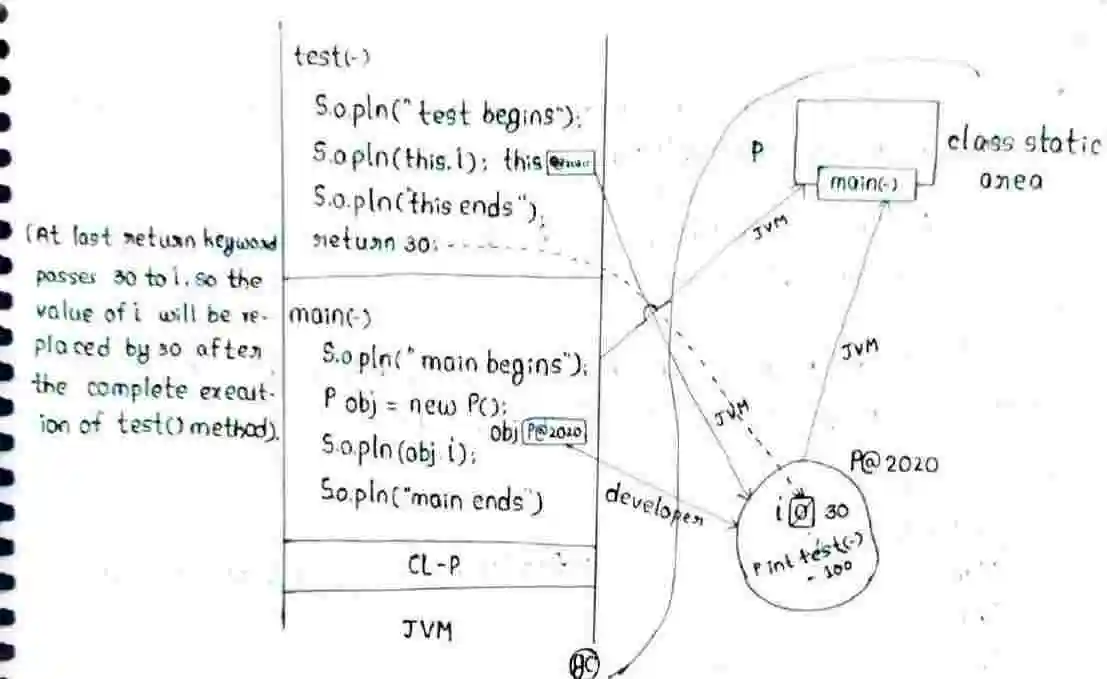 test(-)
S.o.pln("test begins");
S.o.pln(this.i); this
S.o.pln("this ends");
return 30;
(At last return keyword
passes 30 to i. so the
value of i will be re-
placed by 30 after
the complete execut-
ion of test() method).
main(-)
S.o.pln("main begins");
P obj = new P();
obj P@2020
S.o.pln(obj.i);
S.o.pln("main ends")
CL-P
JVM
P
main(-)
class static
area
JVM
JVM
JVM
developer
P@2020
i 0 30
P int test(-)
- 100